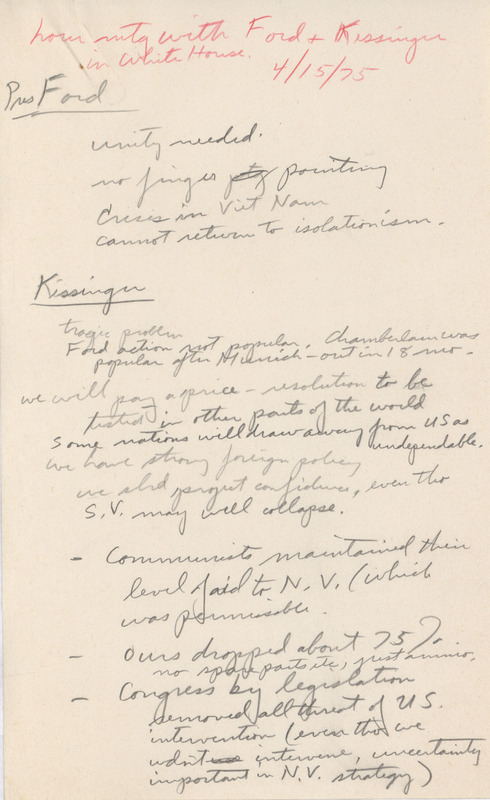 hour mtg with Ford + Kissinger
in White House.
4/15/75
Pres Ford
unity needed.
no finger pointing
Crises in Viet Nam
cannot return to isolationism.
Kissinger
tragic problem
Ford action not popular. Chamberlain was
popular after Munich - out in 18 mo.
we will pay a price - resolution to be
tested in other parts of the world
Some nations will draw away from US as
undependable.
we have strong foreign policy
we shd project confidence, even tho
S.V. may well collapse.
- Communists maintained their
level of aid to N.V. (which
was permissible.
- Ours dropped about 75%
no spare parts, etc, just ammo,
- Congress by legislation
removed all threat of U.S.
intervention (even tho we
wdn't intervene, uncertainty
important in N.V. strategy)